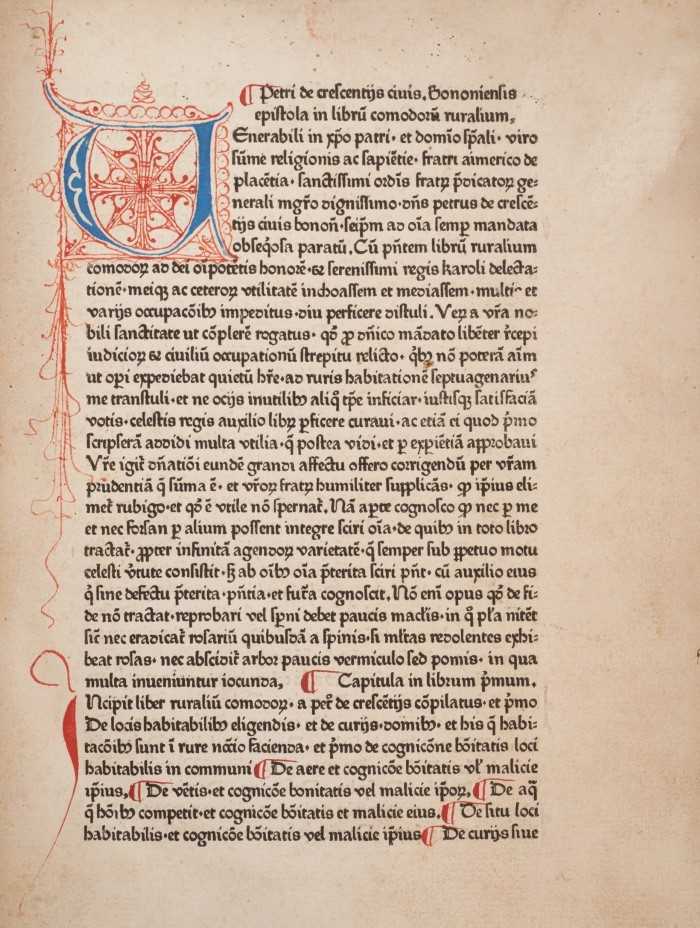 Petri de crescentijs ciuis. Bononiensis
epistola in librū comodorū ruralium.
VEnerabili in xp̄o patri· et dom̄io sp̄ali· viro
sūme religionis ac sapiētie· fratri aimerico de
placētia· sanctissimi ordīs fratrꝝ p̄dicatoꝝ ge⸗
nerali mgr̄o dignissimo· dn̄s petrus de crescē⸗
tijs ciuis bonoñ· seip̄m ad oīa semp̲ mandata
obseq̄osa paratū. Cū pn̄tem librū ruralium
comodoꝝ ad dei oīpotētis honorē· ⁊ serenissimi regis karoli delecta⸗
tionē· meiqꝫ ac ceteroꝝ vtilitatē inchoassem et mediassem· multis et
varijs occupacōibꝰ impeditus· diu perficere distuli. Veꝝ a vr̄a no⸗
bili sanctitate ut cōplerē rogatus· qd̄ ꝓ dn̄ico mādato libēter r̄cepi
iudicioꝝ ⁊ ciuiliū occupationū strepitu relicto· qb̄ꝰ nō poterā aīm
ut opi expediebat quietū hr̄e· ad ruris habitationē septuagenariuꝰ
me transtuli· et ne ocijs inutilibꝰ aliq̄ tp̄e inficiar· iustisqꝫ satisfaciā
votis· celestis regis auxilio libꝝ ꝑficere curaui· ac etiā ei quod p̄mo
scripserā addidi multa vtilia· q̄ postea vidi· et ꝑ expiētiā approbaui
Vr̄e igit᷑ dn̄atiōi eundē grandi affectu offero corrigendū per vr̄am
prudentiā q̄ sūma ē· et vr̄oꝝ fratꝝ humiliter supplicās· qꝫ ip̄ius eli⸗
met᷑ rubigo· et qd̄ ē vtile nō spernat᷑. Nā apte cognosco qꝫ nec ꝑ me
et nec forsan ꝑ alium possent integre sciri oīa· de quibꝰ in toto libro
tractat᷑· ꝓpter infinitā agendoꝝ varietatē· q̄ semper sub ꝑpetuo motu
celesti v̄tute consistit· sꝫ ab oībꝰ oīa p̄terita sciri pn̄t· cū auxilio eius
q̄ sine defectu p̄terita· pn̄tia· et fut̄a cognoscit. Nō enī opus qd̄ de fi⸗
de nō tractat· reprobari vel sp̄ni debet paucis maclīs· in q̄ pl̄a nitēt
sic̄ nec eradicat᷑ rosariū quibusdā a spinis· si ml̄tas redolentes exhi⸗
beat rosas· nec abscidit᷑ arbor paucis vermiculo sed pomis· in qua
multa inueniuntur iocunda. Capitula in librum p̄mum.
Ncipit liber ruraliū comodoꝝ· a pet᷑ de crescētijs cōpilatus· et p̄mo
De locis habitabilibꝰ eligendis· et de curijs· domibꝰ· et his q̄ habi⸗
tacōibꝰ sunt ī rure ncc̄io facienda· et p̄mo de cognicōne bōitatis loci
habitabilis in communi De aere et cognicōe bōitatis vl̄ malicie
ip̄ius. De vētis· et cognicōe bonitatis vel malicie ip̄oꝝ. De aq̄
q̄ hōibꝰ competit· et cognicōe bōitatis et malicie eius. De situ loci
habitabilis· et cognicōe bōitatis vel malicie ip̄ius De curijs siue